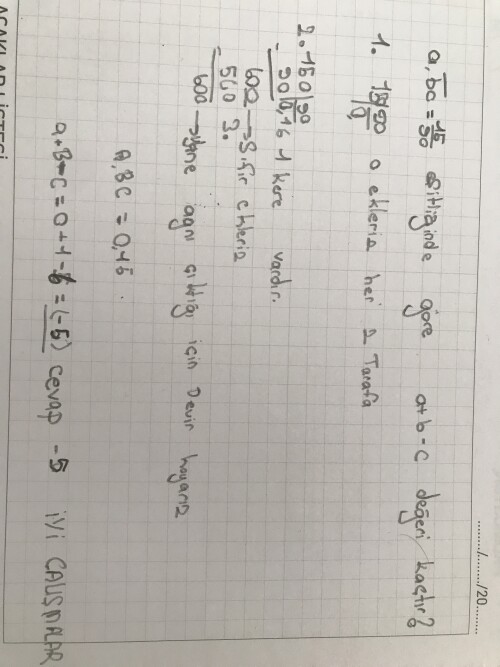 ......../......./20........
a,bc = 15/90 eşitliğinde göre a+b-c değeri kaçtır?
1. 15 | 90 0 ekleriz her 2 Tarafa
0,
2. 150 | 90
- 90 | 0,16 1 kere vardır.
600 → Sıfır ekleriz
- 540 3.
600 → yine aynı çıktığı için Devir koyarız
A,BC = 0,16
a+B-C = 0+1-6 = (-5) cevap -5 iyi ÇALIŞMALAR